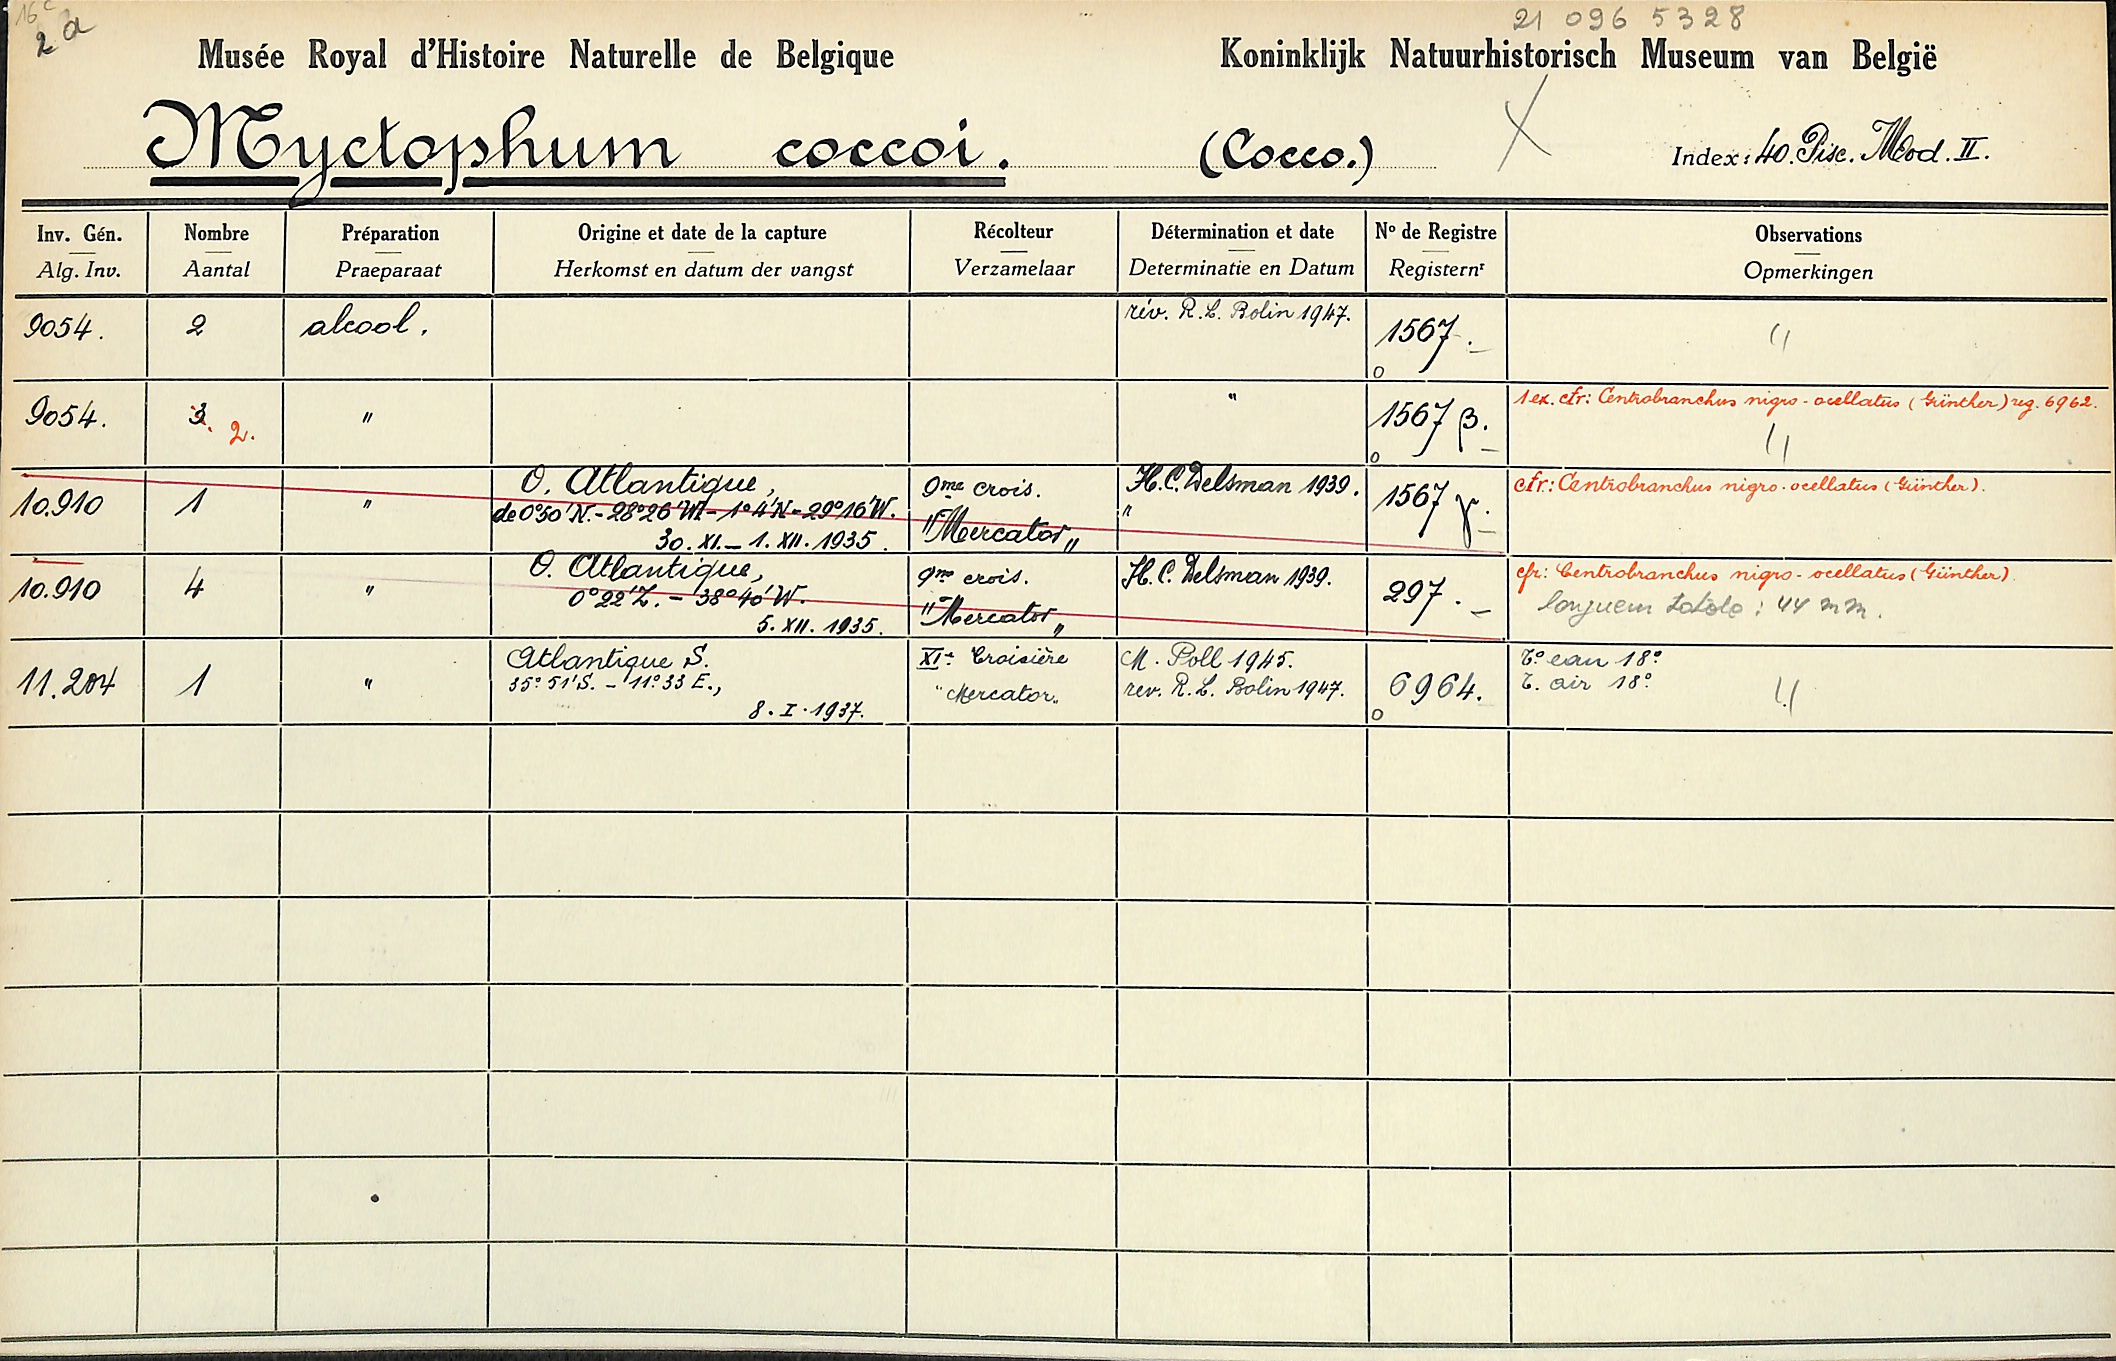 16c
2 a
21 096 5328
Musée Royal d'Histoire Naturelle de Belgique
Koninklijk Natuurhistorisch Museum van België
Myctophum coccoi. (Cocco.) X Index: 40. Pisc. Mod. II.
Inv. Gén. Nombre Préparation Origine et date de la capture Récolteur Détermination et date No de Registre Observations
Alg. Inv. Aantal Praeparaat Herkomst en datum der vangst Verzamelaar Determinatie en Datum Registernr Opmerkingen
9054. 2 alcool. rév. R. L. Bolin 1947. 1567.
o
9054. 3. 2. " " 1567 β. 1 ex. cfr: Centrobranchus nigro-ocellatus (Günther) reg. 6962.
o
O. Atlantique, 9me crois. H. C. Delsman 1939. cfr: Centrobranchus nigro-ocellatus (Günther).
10.910 1 " de 0°50'N. - 28°26'W. - 1°4'N - 29°16'W. "Mercator" " 1567 γ.
30. XI. - 1. XII. 1935.
O. Atlantique, 9me crois. H. C. Delsman 1939. cfr: Centrobranchus nigro-ocellatus (Günther).
10.910 4 " 0°22'Z. - 38°40'W. "Mercator" 297. : 44 mm.
5. XII. 1935.
Atlantique S. XIe Croisière M. Poll 1945. T° eau 18°
11.204 1 " 35°51'S. - 11°33 E., "Mercator" rev. R. L. Bolin 1947. 6964. T. air 18°
8. I. 1937. o